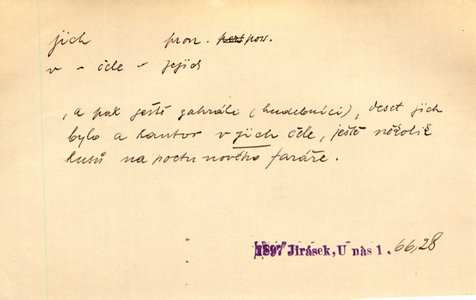 jich pron. poss.
v - čele - jejich
, a pak ještě zahráli (hudebníci), deset jich
bylo a kantor v jich čele, ještě několik
kusů na poctu nového faráře.
1897 Jirásek, U nás 1. 66,28